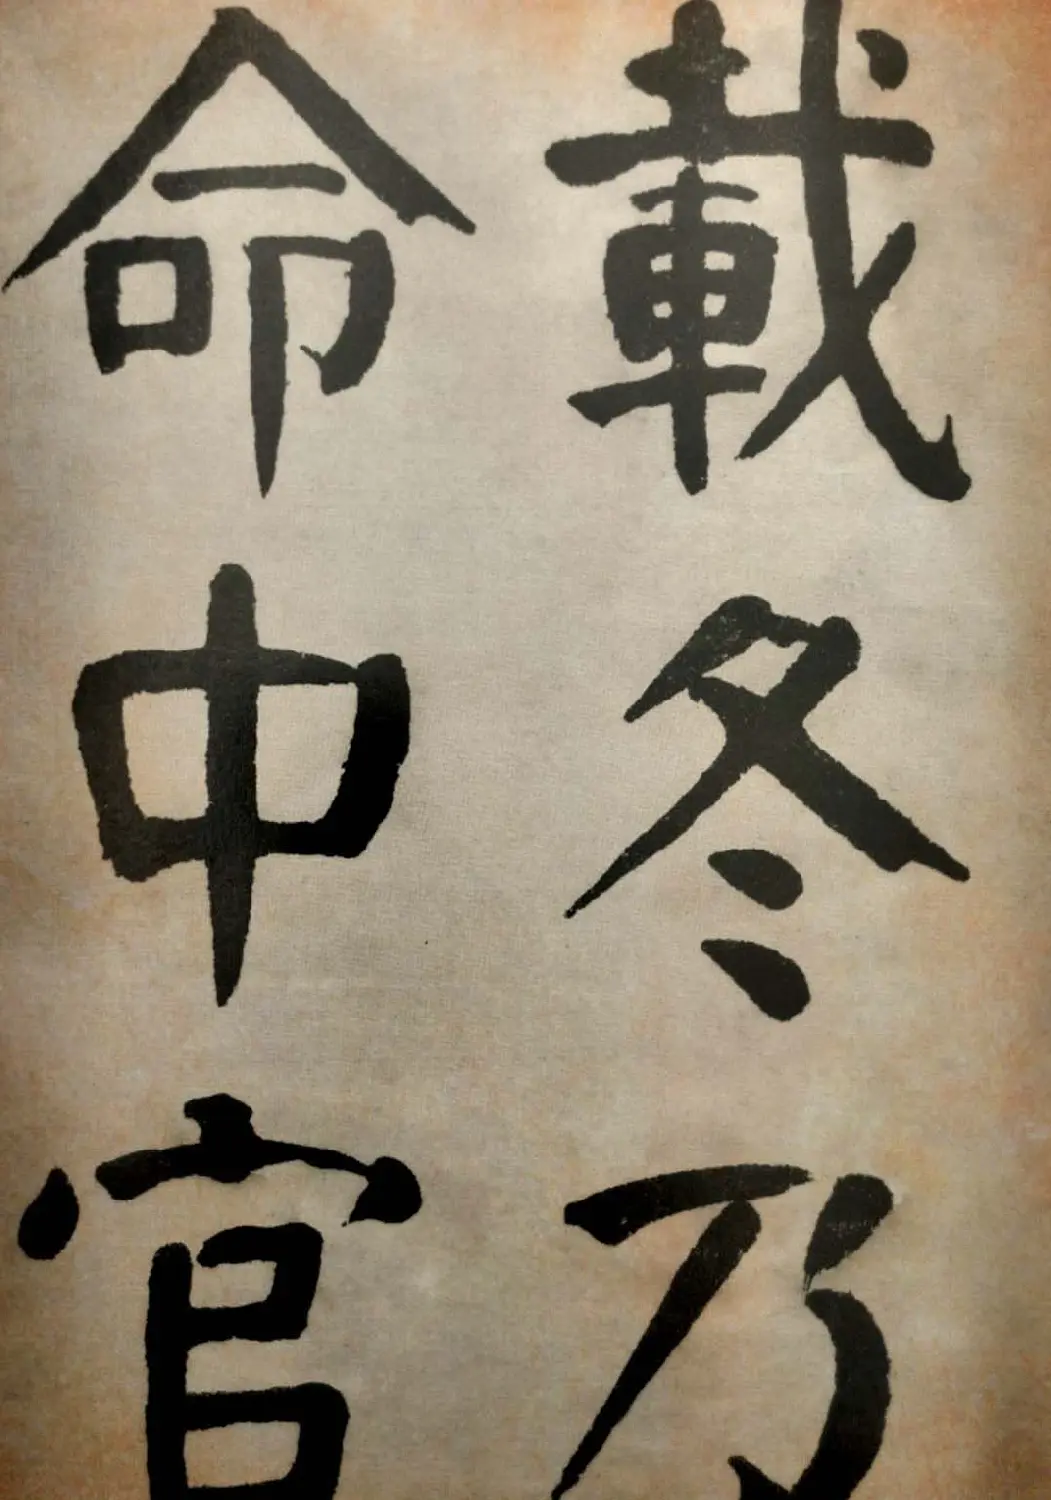 載冬乃
命中官